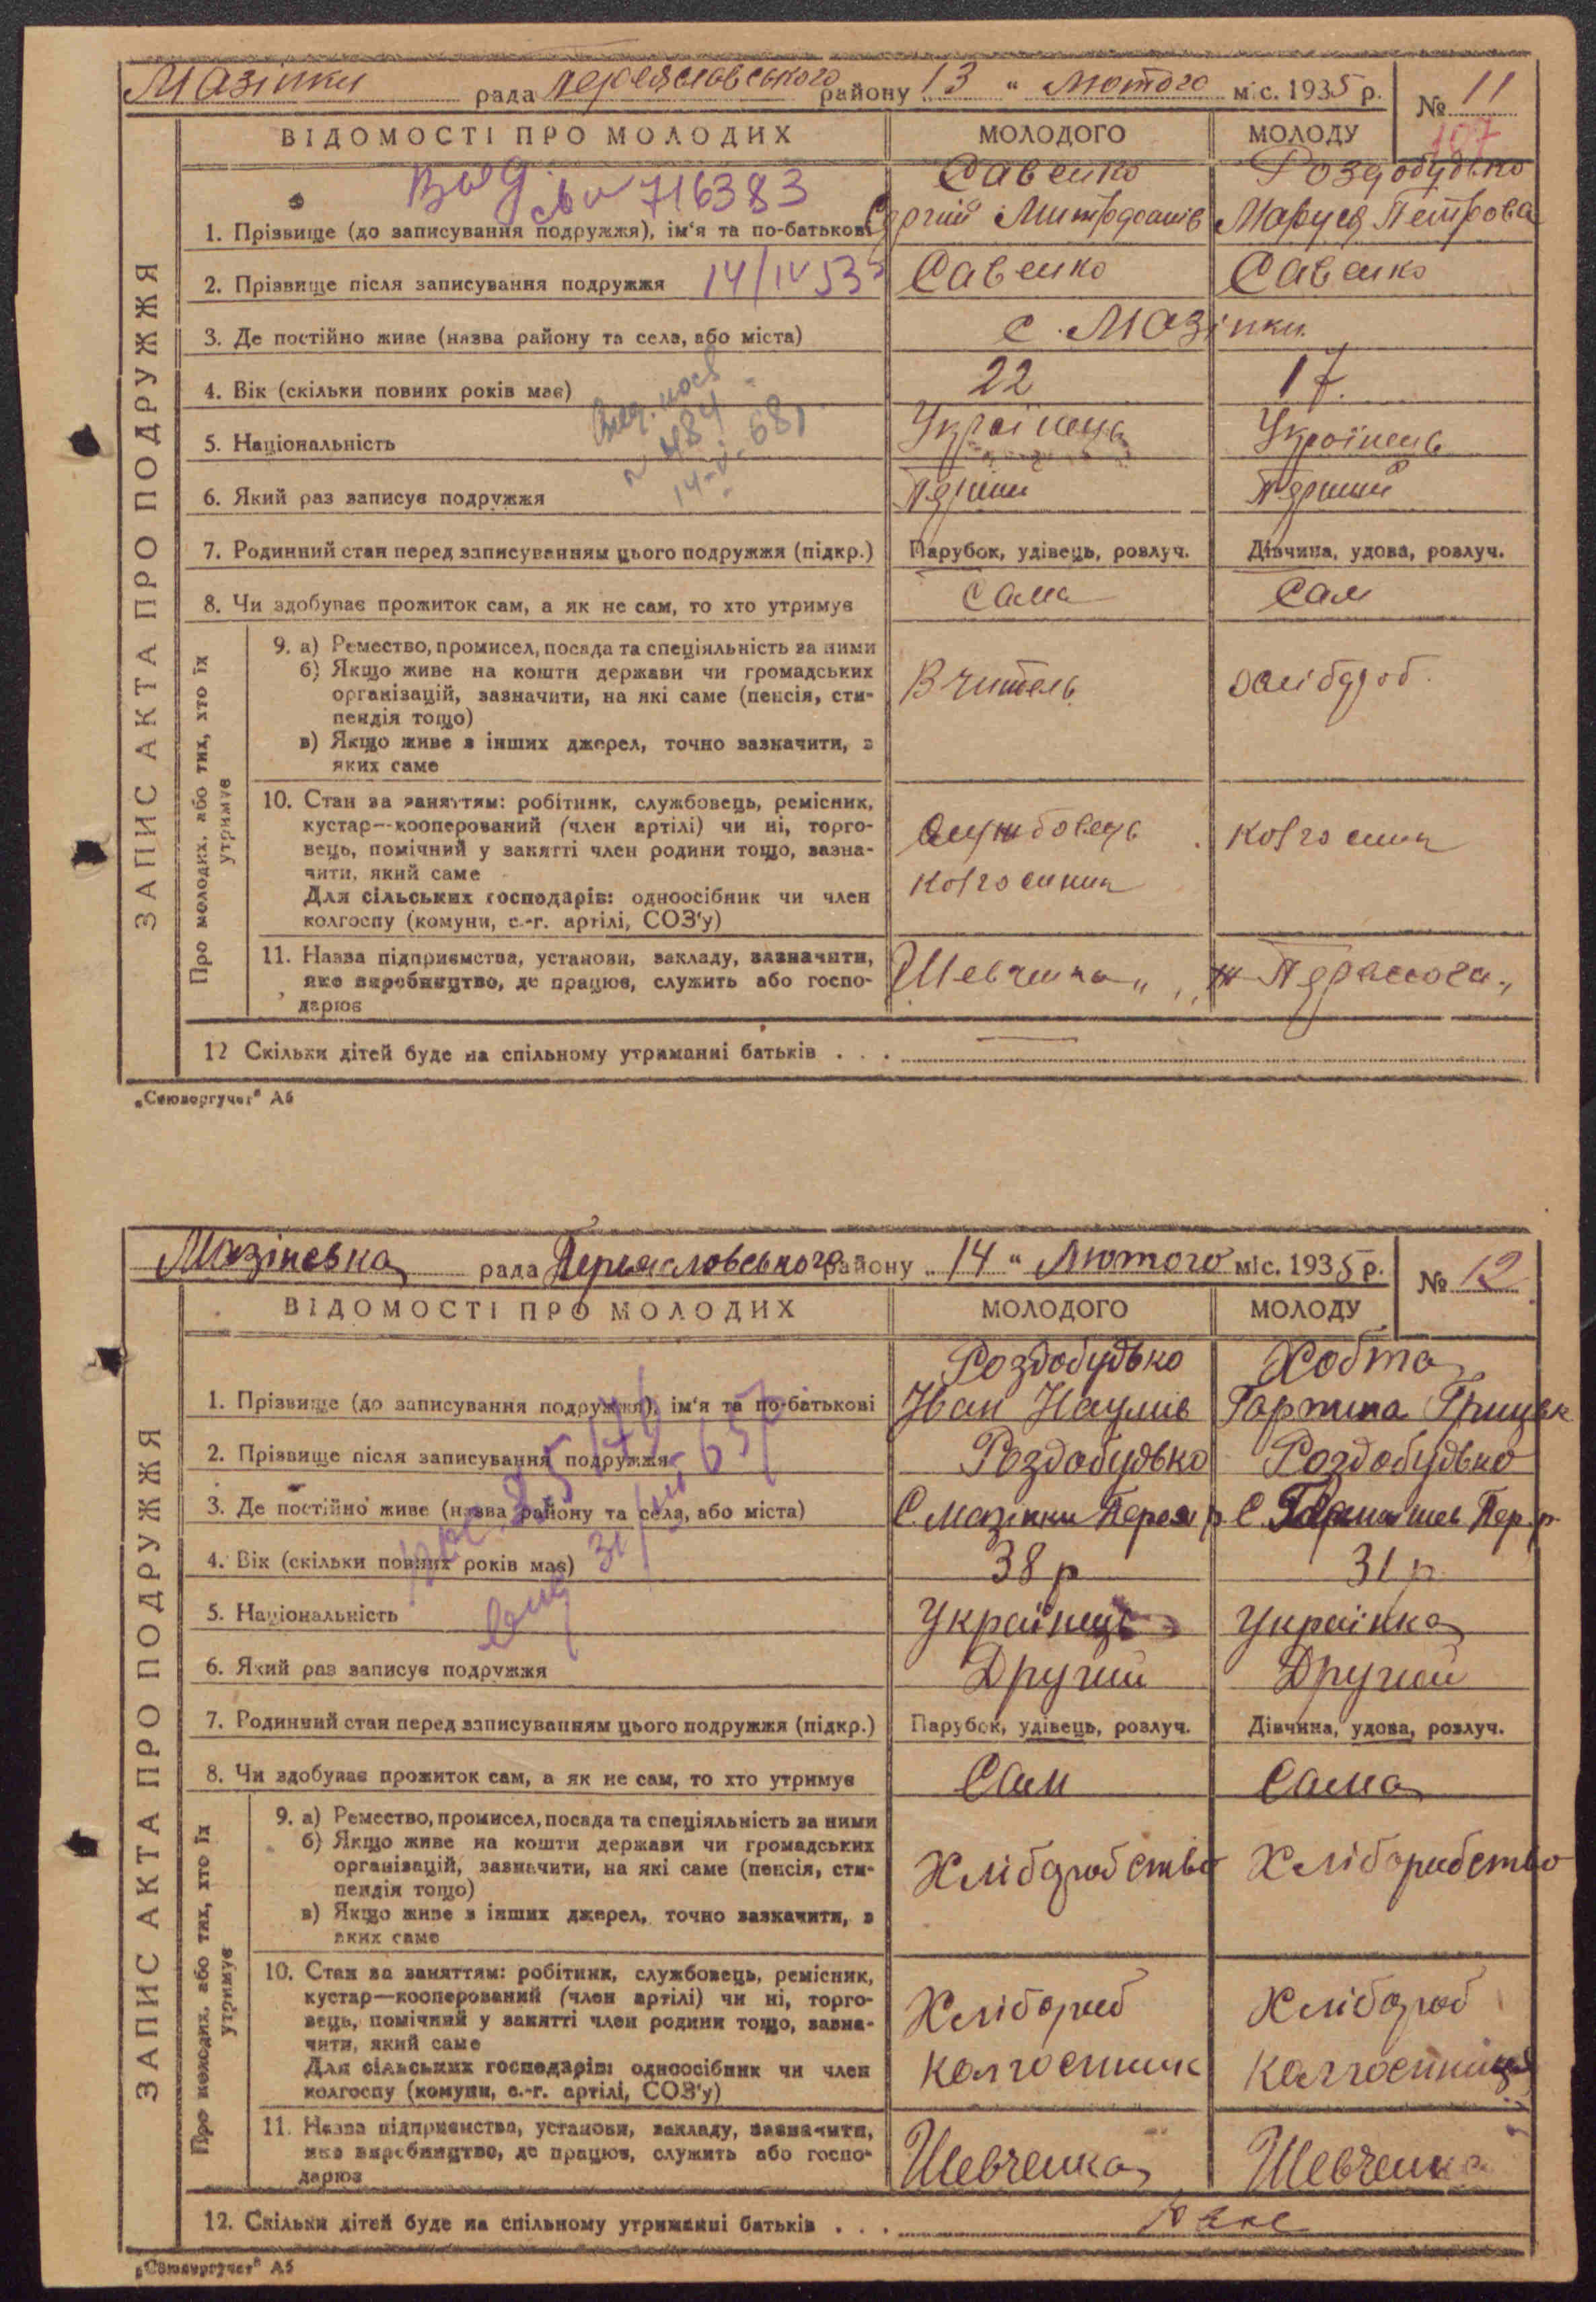 Мазінки рада Переяславського району 13 " Лютого міс. 1935 р. № 11
107
ВІДОМОСТІ ПРО МОЛОДИХ МОЛОДОГО МОЛОДУ
ЗАПИС АКТА ПРО ПОДРУЖЖЯ
Савенко Роздобудько
Вид. св № 716383
1. Прізвище (до записування подружжя), ім'я та по-батькові Сергій Маруся Петрова
2. Прізвище після записування подружжя 14/IV 53 Савенко Савенко
3. Де постійно живе (назва району та села, або міста) с. Мазінки
4. Вік (скільки повних років має) 22 17
5. Національність Українець Українець
6. Який раз записує подружжя Перший Перший
7. Родинний стан перед записуванням цього подружжя (підкр.) Парубок, удівець, розлуч. Дівчина, удова, розлуч.
8. Чи здобуває прожиток сам, а як не сам, то хто утримує Сама Сам
Про молодих, або тих, хто їх утримує
9. а) Ремество, промисел, посада та спеціяльність за ними
б) Якщо живе на кошти держави чи громадських
організацій, зазначити, на які саме (пенсія, сти-
пендія тощо)
в) Якщо живе з інших джерел, точно зазначити, з
яких саме
Вчитель
10. Стан за заняттям: робітник, службовець, ремісник,
кустар—кооперований (член артілі) чи ні, торго-
вець, помічний у занятті член родини тощо, зазна-
чити, який саме
Для сільських господарів: одноосібник чи член
колгоспу (комуни, с.-г. артілі, СОЗ'у)
службовець
колгоспник колгоспник
11. Назва підприємства, установи, закладу, зазначити,
яке виробництво, де працює, служить або госпо-
дарює
Шевченка"
12 Скільки дітей буде на спільному утриманні батьків . . . —
„Союзоргучет" А5
Мазіневка рада Переясловського району „ 14 " Лютого міс. 1935 р. № 12
ВІДОМОСТІ ПРО МОЛОДИХ МОЛОДОГО МОЛОДУ
ЗАПИС АКТА ПРО ПОДРУЖЖЯ
Роздобудько Хобта
1. Прізвище (до записування подружжя), ім'я та по-батькові Іван Наумів
2. Прізвище після записування подружжя Роздобудько Роздобудько
3. Де постійно живе (назва району та села, або міста) С. Мазінки Перея р С.
4. Вік (скільки повних років має) 38 р 31 р
5. Національність Українець Українка
6. Який раз записує подружжя Другий Другий
7. Родинний стан перед записуванням цього подружжя (підкр.) Парубок, удівець, розлуч. Дівчина, удова, розлуч.
8. Чи здобуває прожиток сам, а як не сам, то хто утримує Сам Сама
Про молодих, або тих, хто їх утримує
9. а) Ремество, промисел, посада та спеціяльність за ними
б) Якщо живе на кошти держави чи громадських
організацій, зазначити, на які саме (пенсія, сти-
пендія тощо)
в) Якщо живе з інших джерел, точно зазначити, з
яких саме
Хліборобство Хліборобство
10. Стан за заняттям: робітник, службовець, ремісник,
кустар—кооперований (член артілі) чи ні, торго-
вець, помічний у занятті член родини тощо, зазна-
чити, який саме
Для сільських господарів: одноосібник чи член
колгоспу (комуни, с.-г. артілі, СОЗ'у)
Хлібороб Хлібороб
колгоспник колгоспниця
11. Назва підприємства, установи, закладу, зазначити,
яке виробництво, де працює, служить або госпо-
дарює
Шевченка Шевченка
12. Скільки дітей буде на спільному утриманні батьків . . .
„Союзоргучет" А5